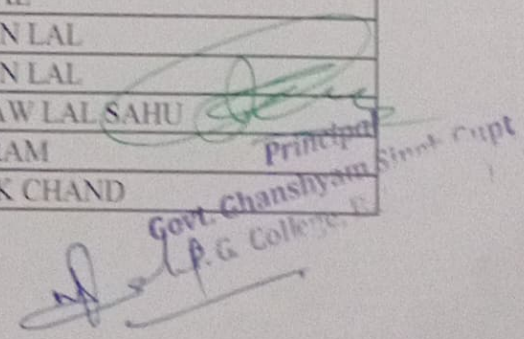 N LAL
N LAL
AW LAL SAHU
AM
K CHAND
Principal
Govt. Ghanshyam Singh Gupt
P.G. College,